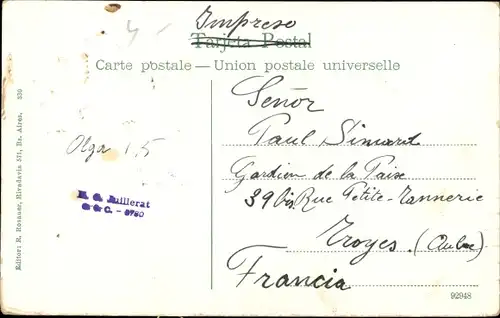 4
Impreso
Tarjeta Postal
Carte postale — Union postale universelle
Señor
Paul Simard
Gardien de la Paise
39 bis. Rue Petite-Tannerie
Troyes. (Aube)
Francia
Olga 1,5
Juillerat
C & C. - 3780
Editor: R. Rosauer, Rivadavia 571, Bs. Aires. 330
92948